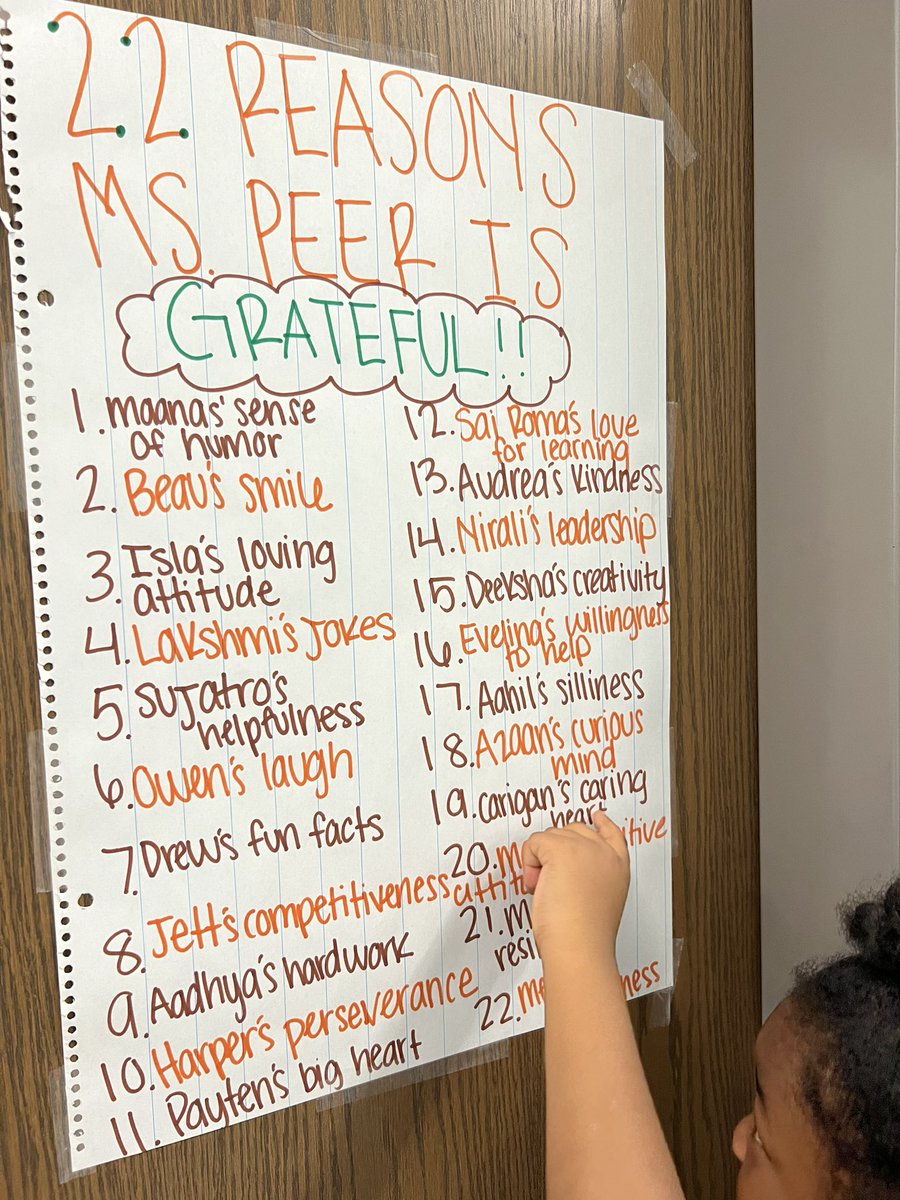 22 REASONS
MS. PEER IS
GRATEFUL!!
1. Maanas' sense
of humor
2. Beau's smile
3. Isla's loving
attitude
4. Lakshmi's jokes
5. Sujatro's
helpfulness
6. Owen's laugh
7. Drew's fun facts
8. Jett's competitiveness
9. Aadhya's hardwork
10. Harper's perseverance
11. Payten's big heart
12. Sai Roma's love
for learning
13. Audrea's kindness
14. Nirali's leadership
15. Deeksha's creativity
16. Evelina's willingness
to help
17. Aahil's silliness
18. Azaan's curious
mind
19. Carigan's caring
heart
20.
21.
22.